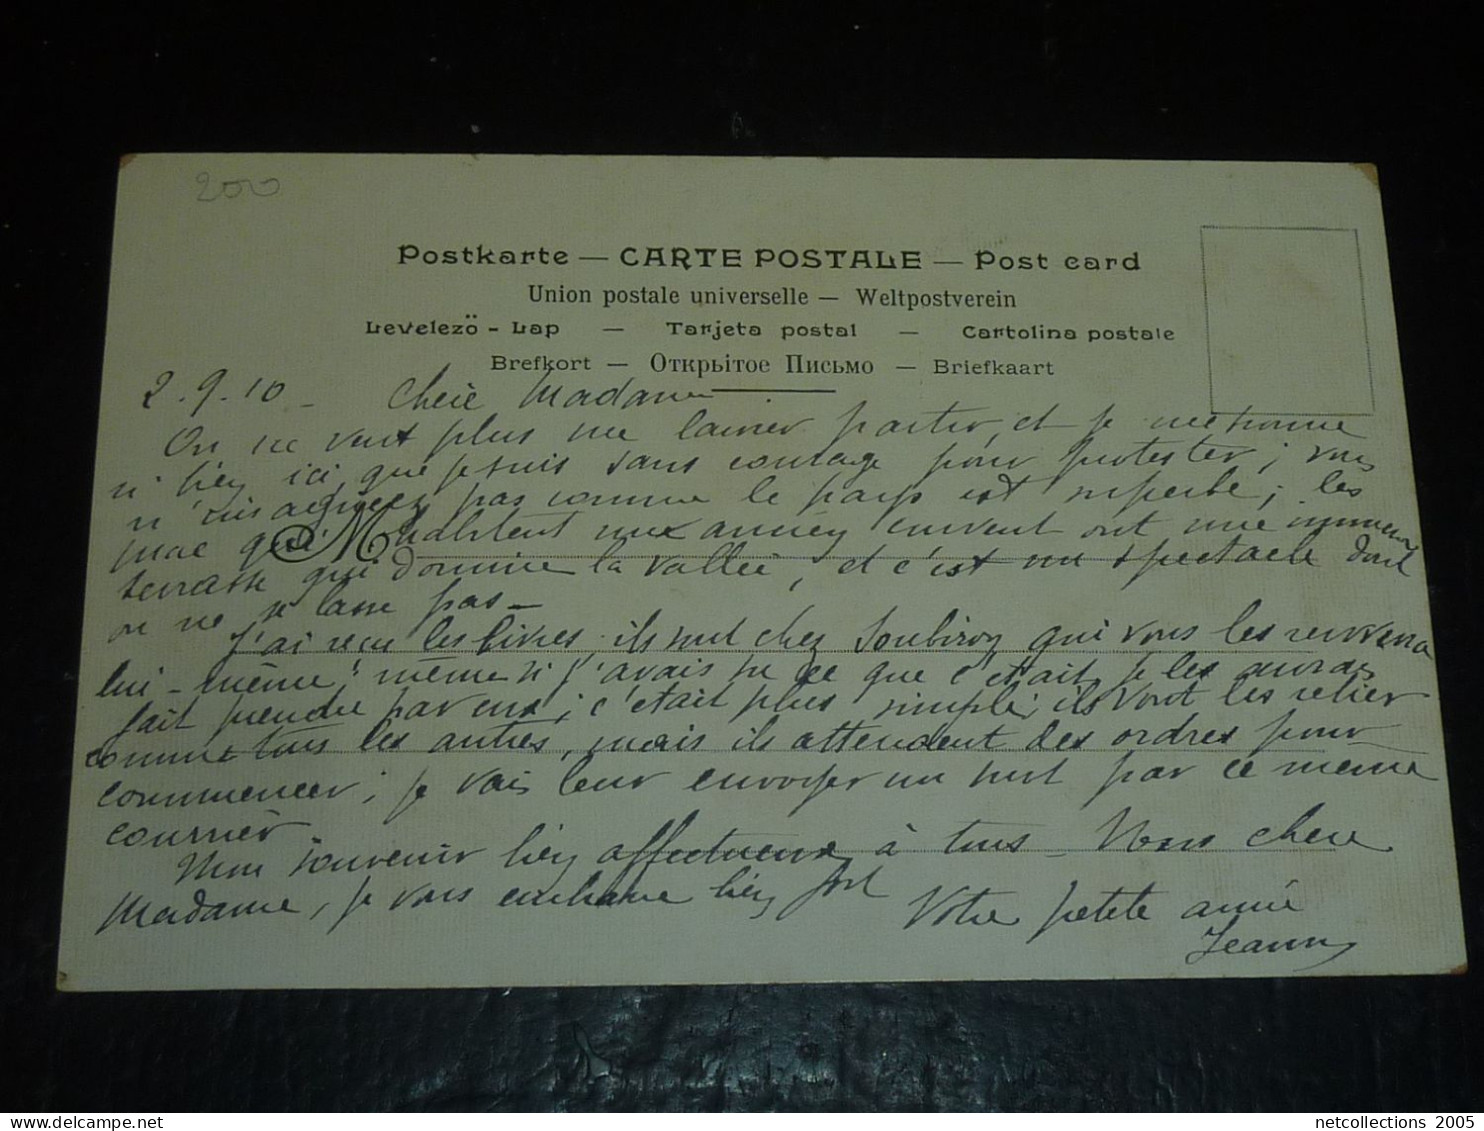 200
Postkarte — CARTE POSTALE — Post card
Union postale universelle — Weltpostverein
Levelező - Lap — Tarjeta postal — Cartolina postale
Brefkort — Открытое Письмо — Briefkaart
2.9.10 - Chère Madame
On ne veut plus me laisser partir, et je me trouve
si bien ici, que je suis sans courage pour protester; vous
n'imaginez pas comme le pays est superbe; les
que j'habitent mes amies ont une immense
terrasse qui domine la vallée, et c'est un spectacle dont
on ne se lasse pas -
J'ai reçu les livres, ils sont chez Soubiron qui vous les renverra
lui-même; même si j'avais su ce que c'était, je les aurais
fait prendre par eux; c'était plus simple; ils vont les relier
comme tous les autres, mais ils attendent des ordres pour
commencer; je vais leur envoyer un mot par ce même
courrier
Mon souvenir bien affectueux à tous - Vous chère
Madame, je vous embrasse bien fort
Votre petite amie
Jeanne
M
netcollections 2005